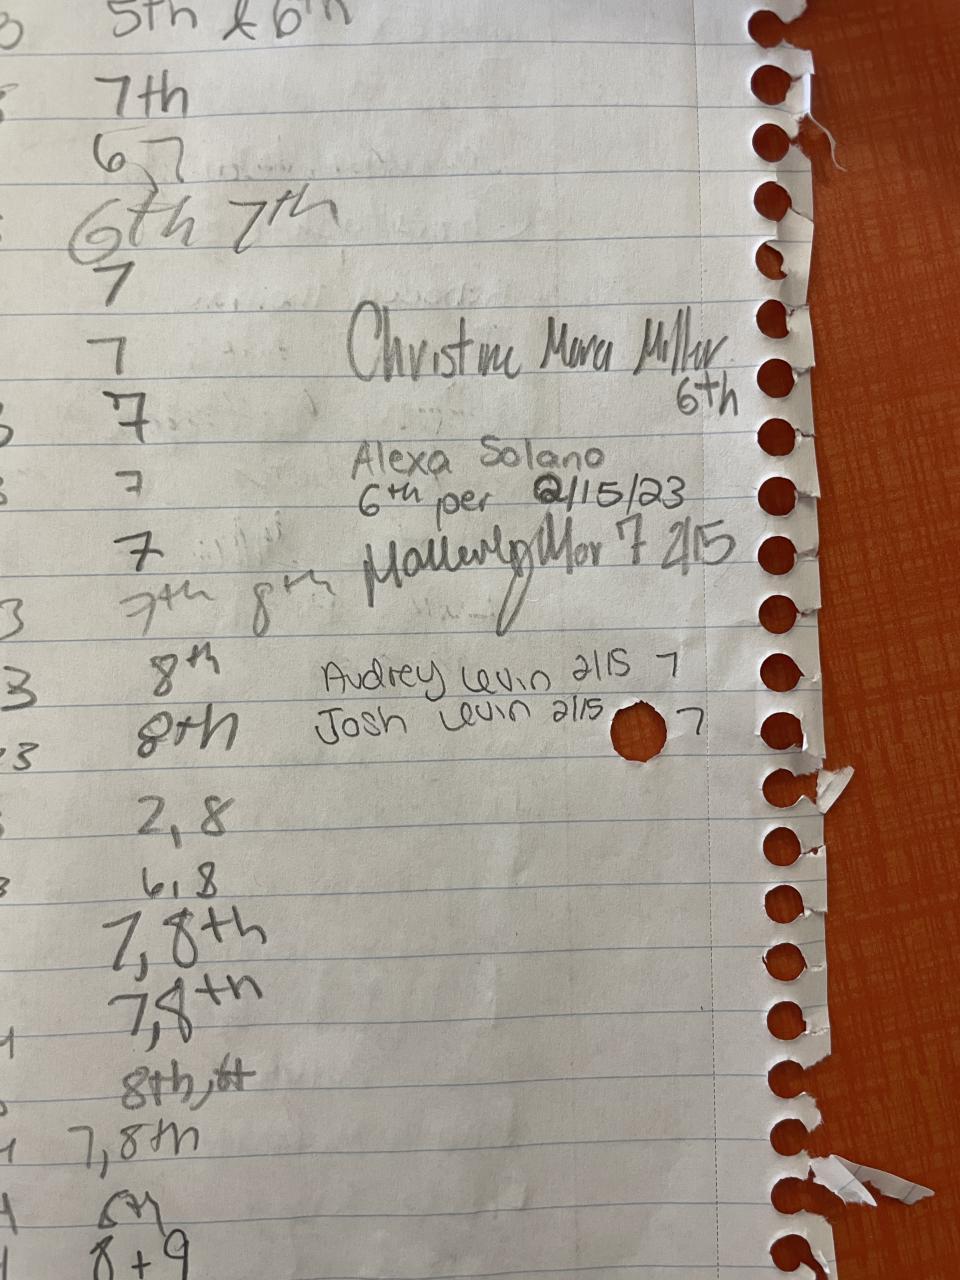 3 5th & 6th
7th
6, 7
6th 7th
7
7 Christine Mara Miller
6th
3 7
Alexa Solano
3 7
6th per 2/15/23
7 Mor 7 2/15
3 7th 8th
3 8th Audrey Levin 2/15 7
23 8th Josh Levin 2/15 7
2, 8
3 6, 8
7, 8th
4 7, 8th
8th,
4 7, 8th
4
8 + 9